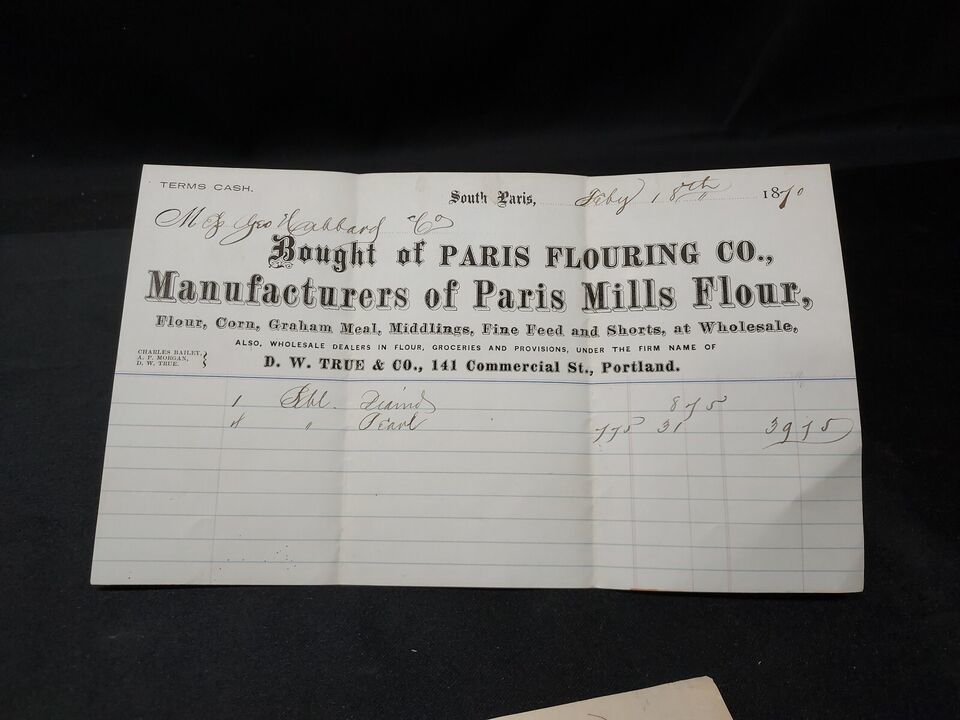 TERMS CASH.
South Paris, Feby 18th 1870
M Geo Hubbard & Co
Bought of PARIS FLOURING CO.,
Manufacturers of Paris Mills Flour,
Flour, Corn, Graham Meal, Middlings, Fine Feed and Shorts, at Wholesale,
ALSO, WHOLESALE DEALERS IN FLOUR, GROCERIES AND PROVISIONS, UNDER THE FIRM NAME OF
CHARLES BAILEY,
A. P. MORGAN,
D. W. TRUE.
D. W. TRUE & CO., 141 Commercial St., Portland.
1 Bbl. 8 75
4 " Pearl 775 31 3975